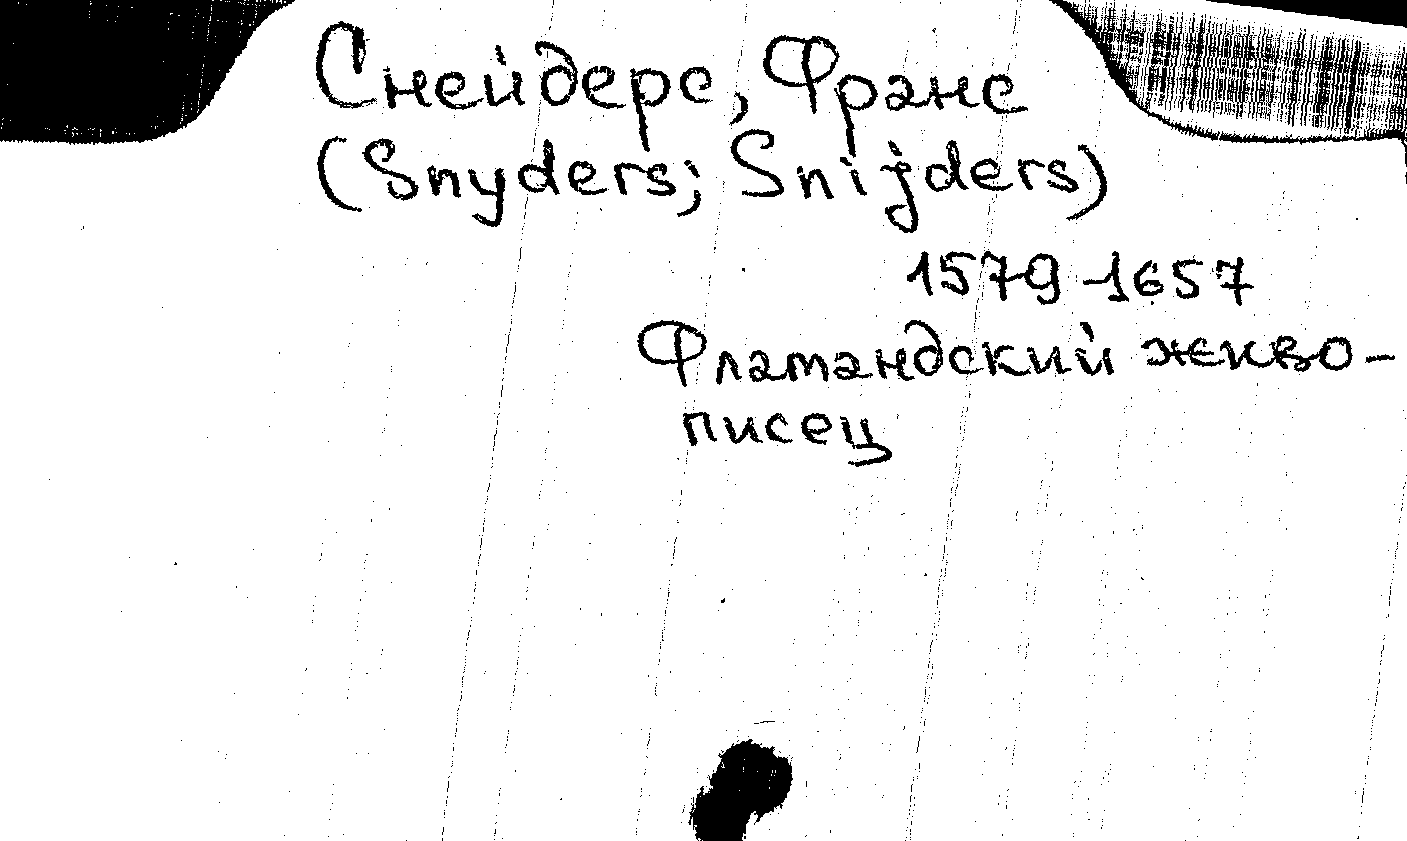 Снейдерс, Франс
(Snyders; Snijders)
1579-1657
Фламандский живо-
писец